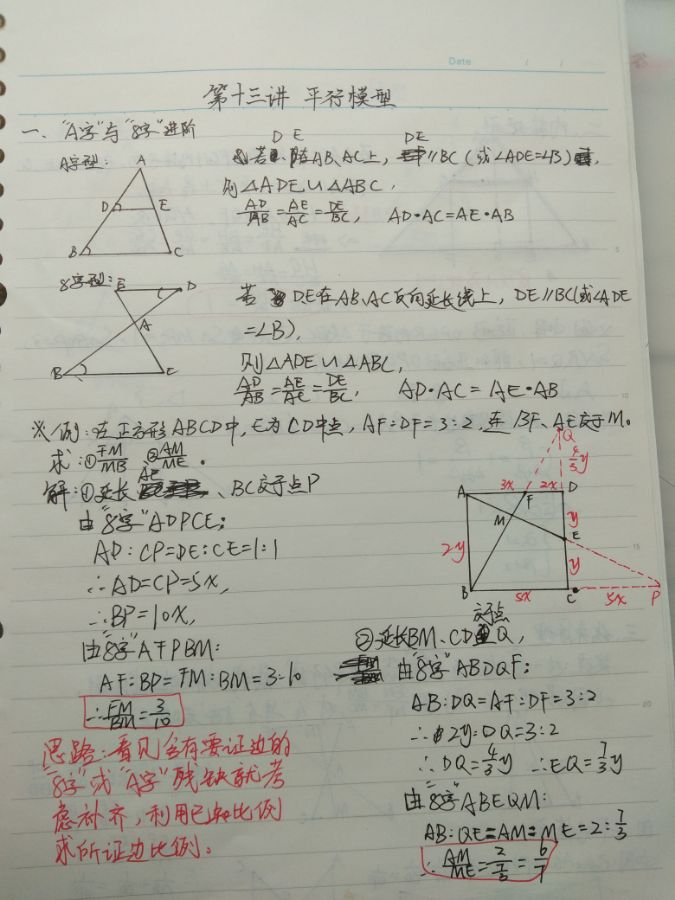 Date / /
第十三讲 平行模型
一、"A字"与"8字"进阶
A字型:
A
D
E
B
C
D E
DE
若 在AB、AC上, ∥BC (或∠ADE=∠B),
则△ADE∽△ABC,
AD/AB=AE/AC=DE/BC, AD·AC=AE·AB
8字型:
E
D
A
B
C
若 DE在AB、AC反向延长线上, DE∥BC(或∠ADE
=∠B),
则△ADE∽△ABC,
AD/AB=AE/AC=DE/BC, AD·AC=AE·AB
※例:在正方形ABCD中,E为CD中点,AF:DF=3:2,连BF、AE交于M。
求:①FM/MB ②AM/ME。
解:①延长AE、BC交于点P
由"8字"ADPCE:
AD:CP=DE:CE=1:1
∴AD=CP=5x,
∴BP=10x,
由"8字"AFPBM:
AF:BP=FM:BM=3:10
∴FM/BM=3/10
思路:看见含有要证边的
"8字"或"A字"残缺就考
虑补齐,利用已知比例
求所证边比例。
Q
4/3y
3x
2x
A
F
D
M
y
E
2y
y
B
5x
C
5x
P
②延长BM、CD交于点Q,
由"8字"ABDQF:
AB:DQ=AF:DF=3:2
∴2y:DQ=3:2
∴DQ=4/3y ∴EQ=7/3y
由"8字"ABEQM:
AB:QE=AM:ME=2:7/3
∴AM/ME=2/(7/3)=6/7